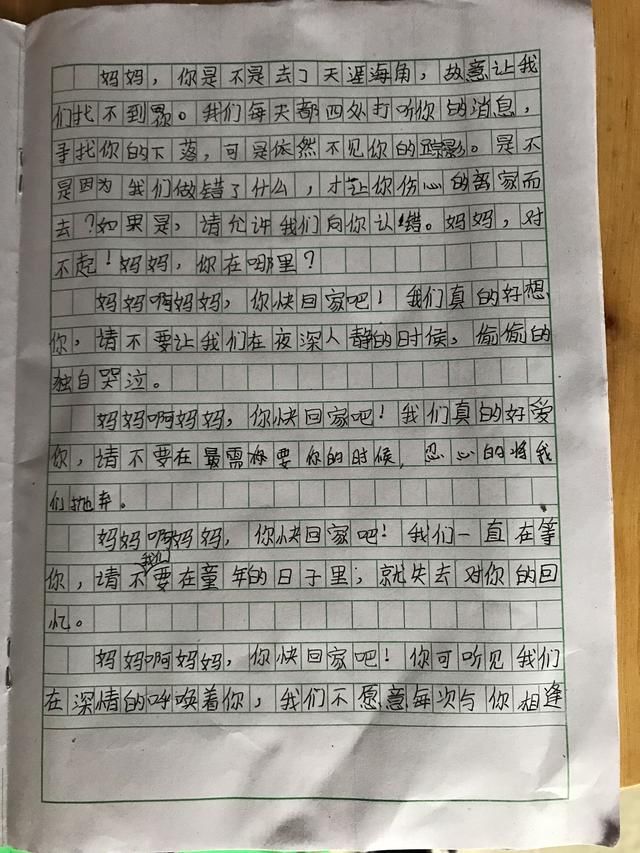 妈妈，你是不是去了天涯海角，故意让我
们找不到您。我们每天都四处打听你的消息，
寻找你的下落，可是依然不见你的踪影。是不
是因为我们做错了什么，才让你伤心的离家而
去？如果是，请允许我们向你认错。妈妈，对
不起！妈妈，你在哪里？
妈妈啊妈妈，你快回家吧！我们真的好想
你，请不要让我们在夜深人静的时候，偷偷的
独自哭泣。
妈妈啊妈妈，你快回家吧！我们真的好爱
你，请不要在最需要你的时候，忍心的将我
们抛弃。
妈妈啊妈妈，你快回家吧！我们一直在等
你，请不要我们在童年的日子里；就失去对你的回
忆。
妈妈啊妈妈，你快回家吧！你可听见我们
在深情的呼唤着你，我们不愿意每次与你相逢